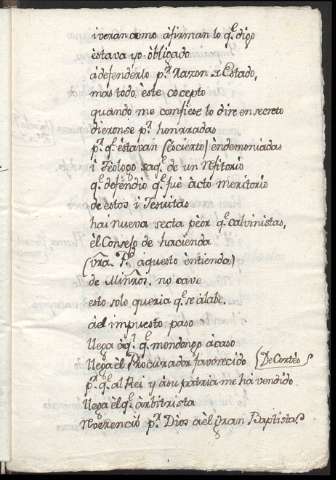 i veran como afirman lo q.e digo
estava yo obligado
a defenderlo p.r Razon de Estado,
mas todo este cocepto
quando me confiese lo dire en secreto
dieronse p.r honrradas
p.r q.e estavan (es cierto) endemoniadas
i Teologo saq.e de un Refitorio
q.e defendio q.e fue acto meritorio
de estos i Jesuitas
hai nueva secta peor q.e calvinistas,
el Consejo de hacienda
(vra. aquesto entienda)
de no cave
esto solo queria q.e se alabe.
del impuesto paso
llega q.e mondongo acaso
llega el Procurador favorecido (De Cortes
p.r q.e al Rei y a su patria me ha vendido
llega el q.e arbitrista
Reverencio p.r Dios a el gran Baptista